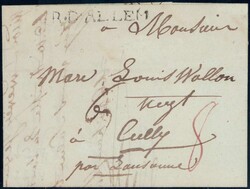 AR.D'ALLEM
à Monsieur
Marc Louis Wallon
Negt
à Cully
par Lausanne 8